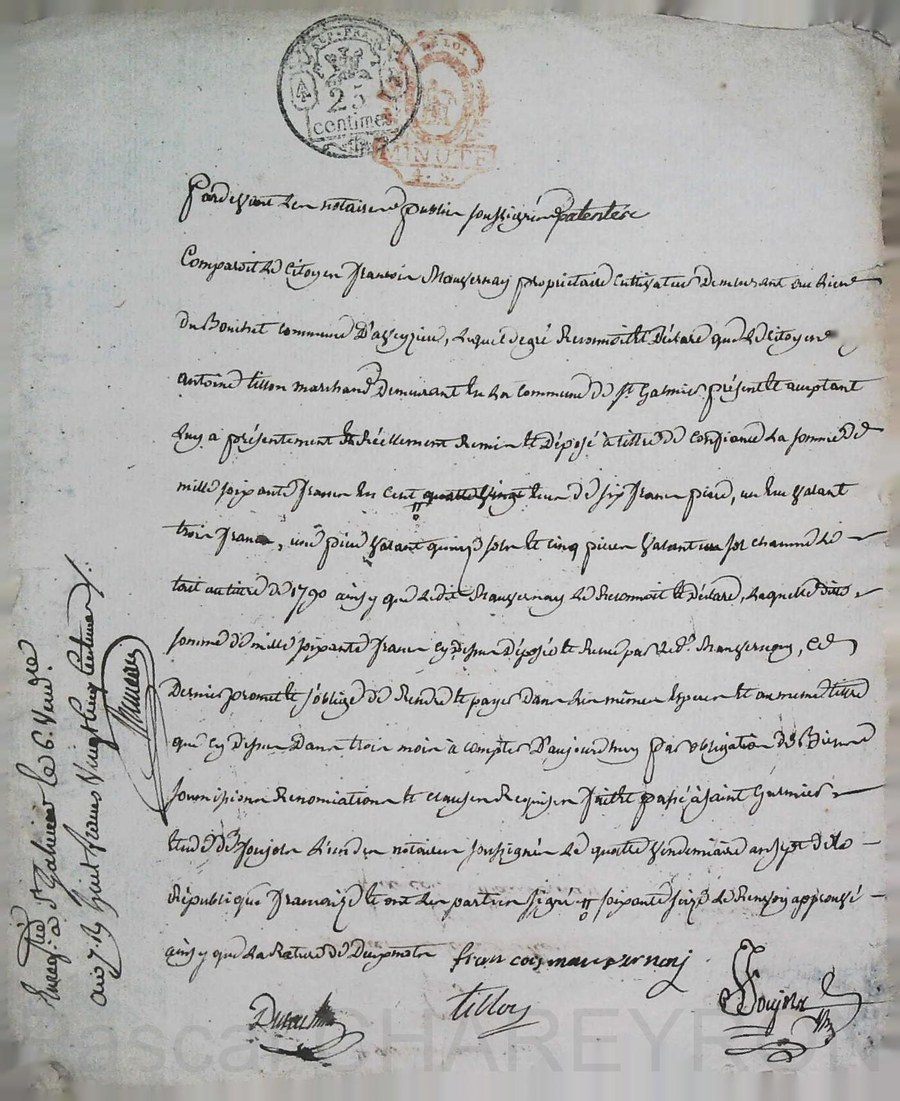 REP. FRA.
4
25
centimes
DE LOI
MINUTE
Pardevant les notaires publics soussignés patentés
Comparoit le Citoyen françois Mauvernay propriétaire Cultivateur Demeurant au lieu
du Bouchet commune D'aveyzieu, lequel de gré Reconnoit et Déclare que le Citoyen
antoine tillon marchand Demeurant en la Commune de St Galmier présent et acceptant
luy a présentement et Réellement Remis et Déposé à tittre de Confiance la somme de
mille soixante francs en Cent quatre vingt ecus de six francs piece, un ecu valant
trois francs, une piece valant quinze sols et cinq pieces valant un sol chacune le
tout au titre de 1790 ainsy que ledit Mauvernay le Reconnoit et Déclare, laquelle ditte
somme de mille soixante francs cy dessus Déposée et Reçue par led. Mauvernay, Ce
Dernier promet et s'oblige de Rendre et payer Dans les mêmes Especes et au meme tittre
que cy dessus Dans trois mois à compter D'aujourdhuy par obligation de Biens
soumissions Renonciations et clauses Requises fait et passé à saint Galmier
Etude de Soujola l'un des notaires soussignés le quatre vendemiaire an sept de la
République française et ont les parties signé soixante seize le Renvoy approuvé
ainsy que la Rature de Deux mots
francoismauvernay
tillon
Soujola
Enregtré à St Galmier le 6. Vendre
an 7. R/ huit francs Vingt Cinq Centimes
CHAREYRON